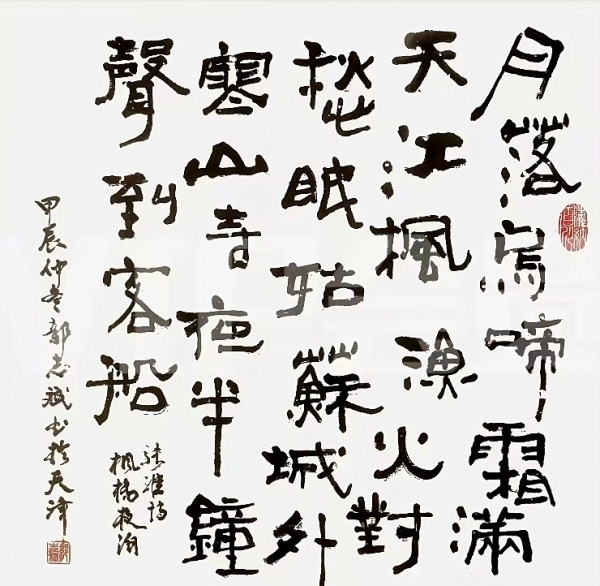 月落烏啼霜滿
天江楓漁火對
愁眠姑蘇城外
寒山寺夜半鐘
聲到客船
张继诗
楓橋夜泊
甲辰仲冬郭志斌书於天津